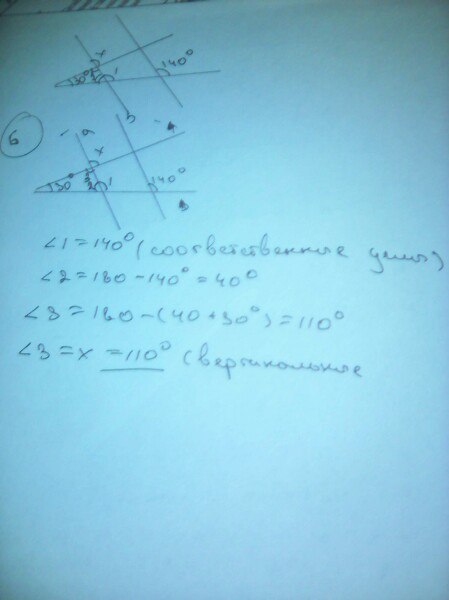 x
30°
2
1
140°
b
б
a
x
30°
3
2
1
140°
∠1 = 140° (соответственные углы)
∠2 = 180 - 140° = 40°
∠3 = 180 - (40 + 30°) = 110°
∠3 = x = 110° (вертикальные